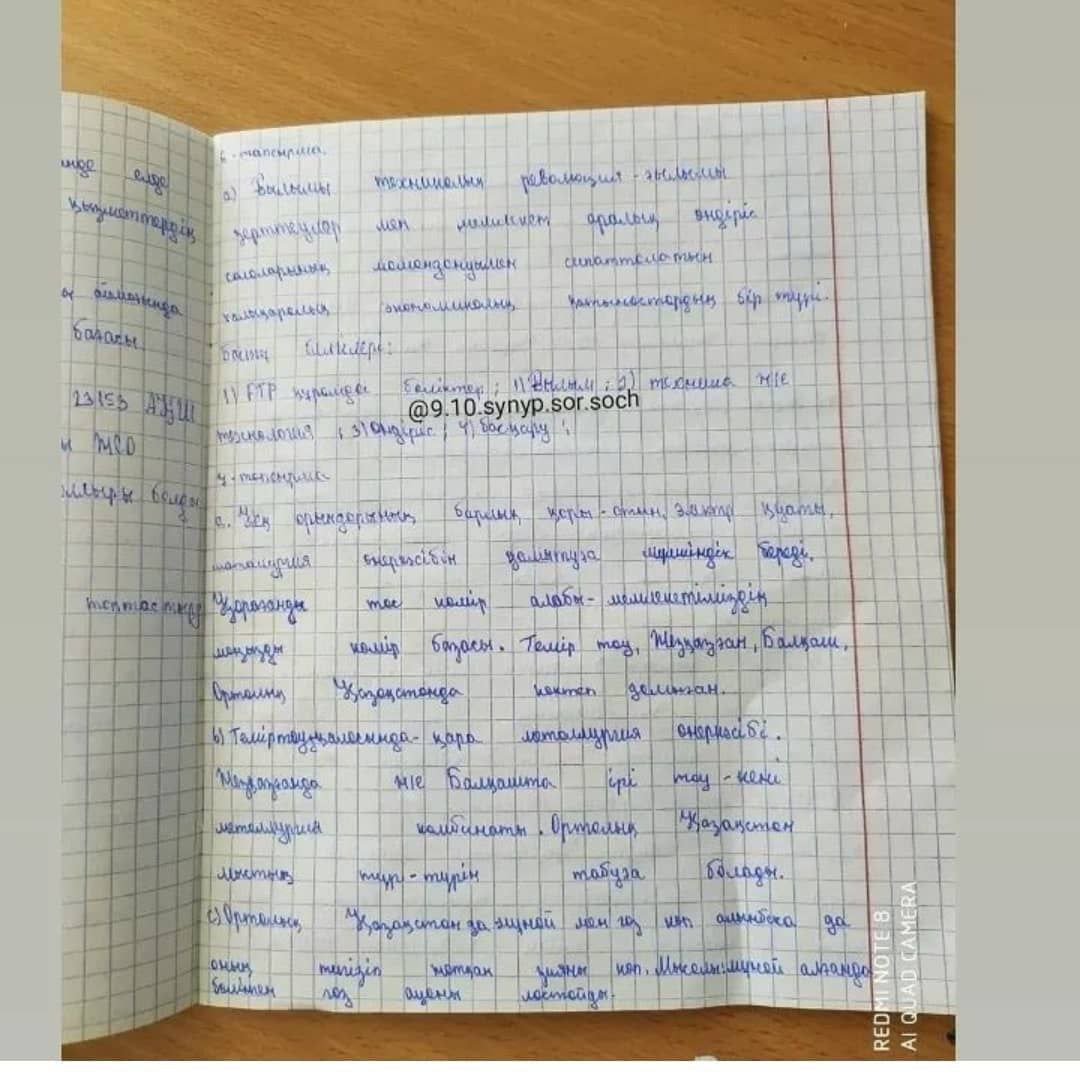 6-тапсырма.
а) Ғылыми техникалық революция - ғылыми
зерттеулер мен мемлекет аралық өндіріс
салаларының мамандануымен сипатталатын
халықаралық экономикалық қатынастардың бір түрі.
басты белгілері:
1) ҒТР құрамдас бөліктер; 1) Ғылым; 2) техника және
технология; 3) Өндіріс; 4) басқару;
7-тапсырма
а. Кең орындарының барлық қоры - отын, электр қуаты,
металлургия өнеркәсібін дамытуға мүмкіндік береді.
Қарағанды тас көмір алабы - мемлекетіміздің
маңызды көмір базасы. Темір тау, Жезқазған, Балқаш,
Орталық Қазақстанда көптеп дамыған.
b) Теміртау қаласында - қара металлургия өнеркәсібі.
Жезқазғанда және Балқашта ірі тау-кені
металлургия комбинаты. Орталық Қазақстан
мыстың түр-түрін табуға болады.
с) Орталық Қазақстан да мұнай мен газ көп алынбаса да
оның тигізіп жатқан зияны көп. Мысалы: мұнай алғанда
бөлінген газ ауаны ластайды.
інде елде
қызметтердің
аймағында
базасы
23153 АҚШ
МСО
болды
топтастыру
@9.10.synyp.sor.soch
REDMI NOTE 8
AI QUAD CAMERA